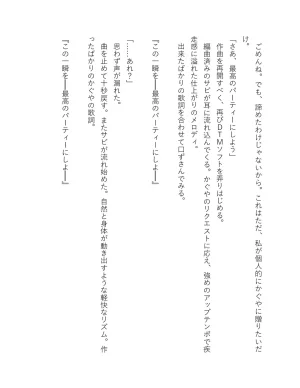 ごめんね。でも、諦めたわけじゃないから。これはただ、私が個人的にかぐやに贈りたいだ
け。
「さあ、最高のパーティーにしよう」
作曲を再開すべく、再びDTMソフトを弄りはじめる。
編曲済みのサビが耳に流れ込んでくる。かぐやのリクエストに応え、強めのアップテンポで疾
走感に溢れた仕上がりのメロディ。
出来たばかりの歌詞を合わせて口ずさんでみる。
『この一瞬を――最高のパーティーにしよ――』
「……あれ？」
思わず声が漏れた。
曲を止めて十秒戻す。またサビが流れ始めた。自然と身体が動き出すような軽快なリズム。作
ったばかりのかぐやの歌詞。
『この一瞬を――最高のパーティーにしよ――』